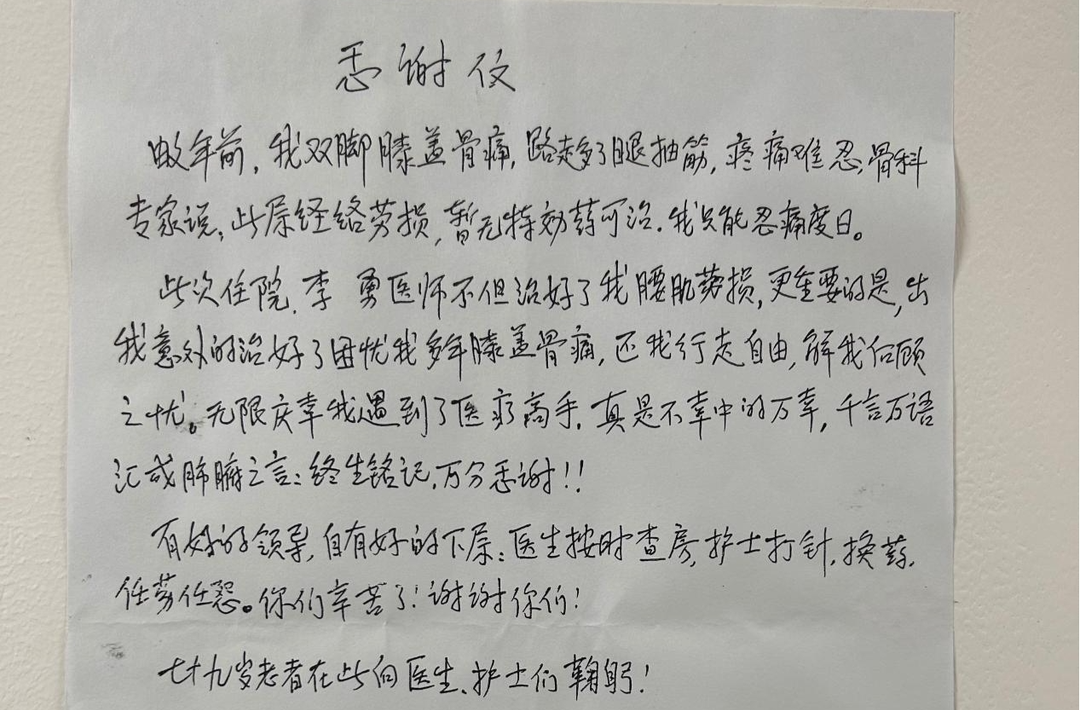 感谢信
数年前，我双脚膝盖骨痛，路走多了腿抽筋，疼痛难忍，骨科
专家说，此属经络劳损，暂无特效药可治。我只能忍痛度日。
此次住院，李 勇医师不但治好了我腰肌劳损，更重要的是，出
我意外的治好了困忧我多年膝盖骨痛，还我行走自由，解我后顾
之忧。无限庆幸我遇到了医疗高手，真是不幸中的万幸，千言万语
汇成肺腑之言：终生铭记，万分感谢！！
有好的领导，自有好的下属：医生按时查房，护士打针，换药，
任劳任怨。你们辛苦了！谢谢你们！
七十九岁老者在此向医生、护士们鞠躬！